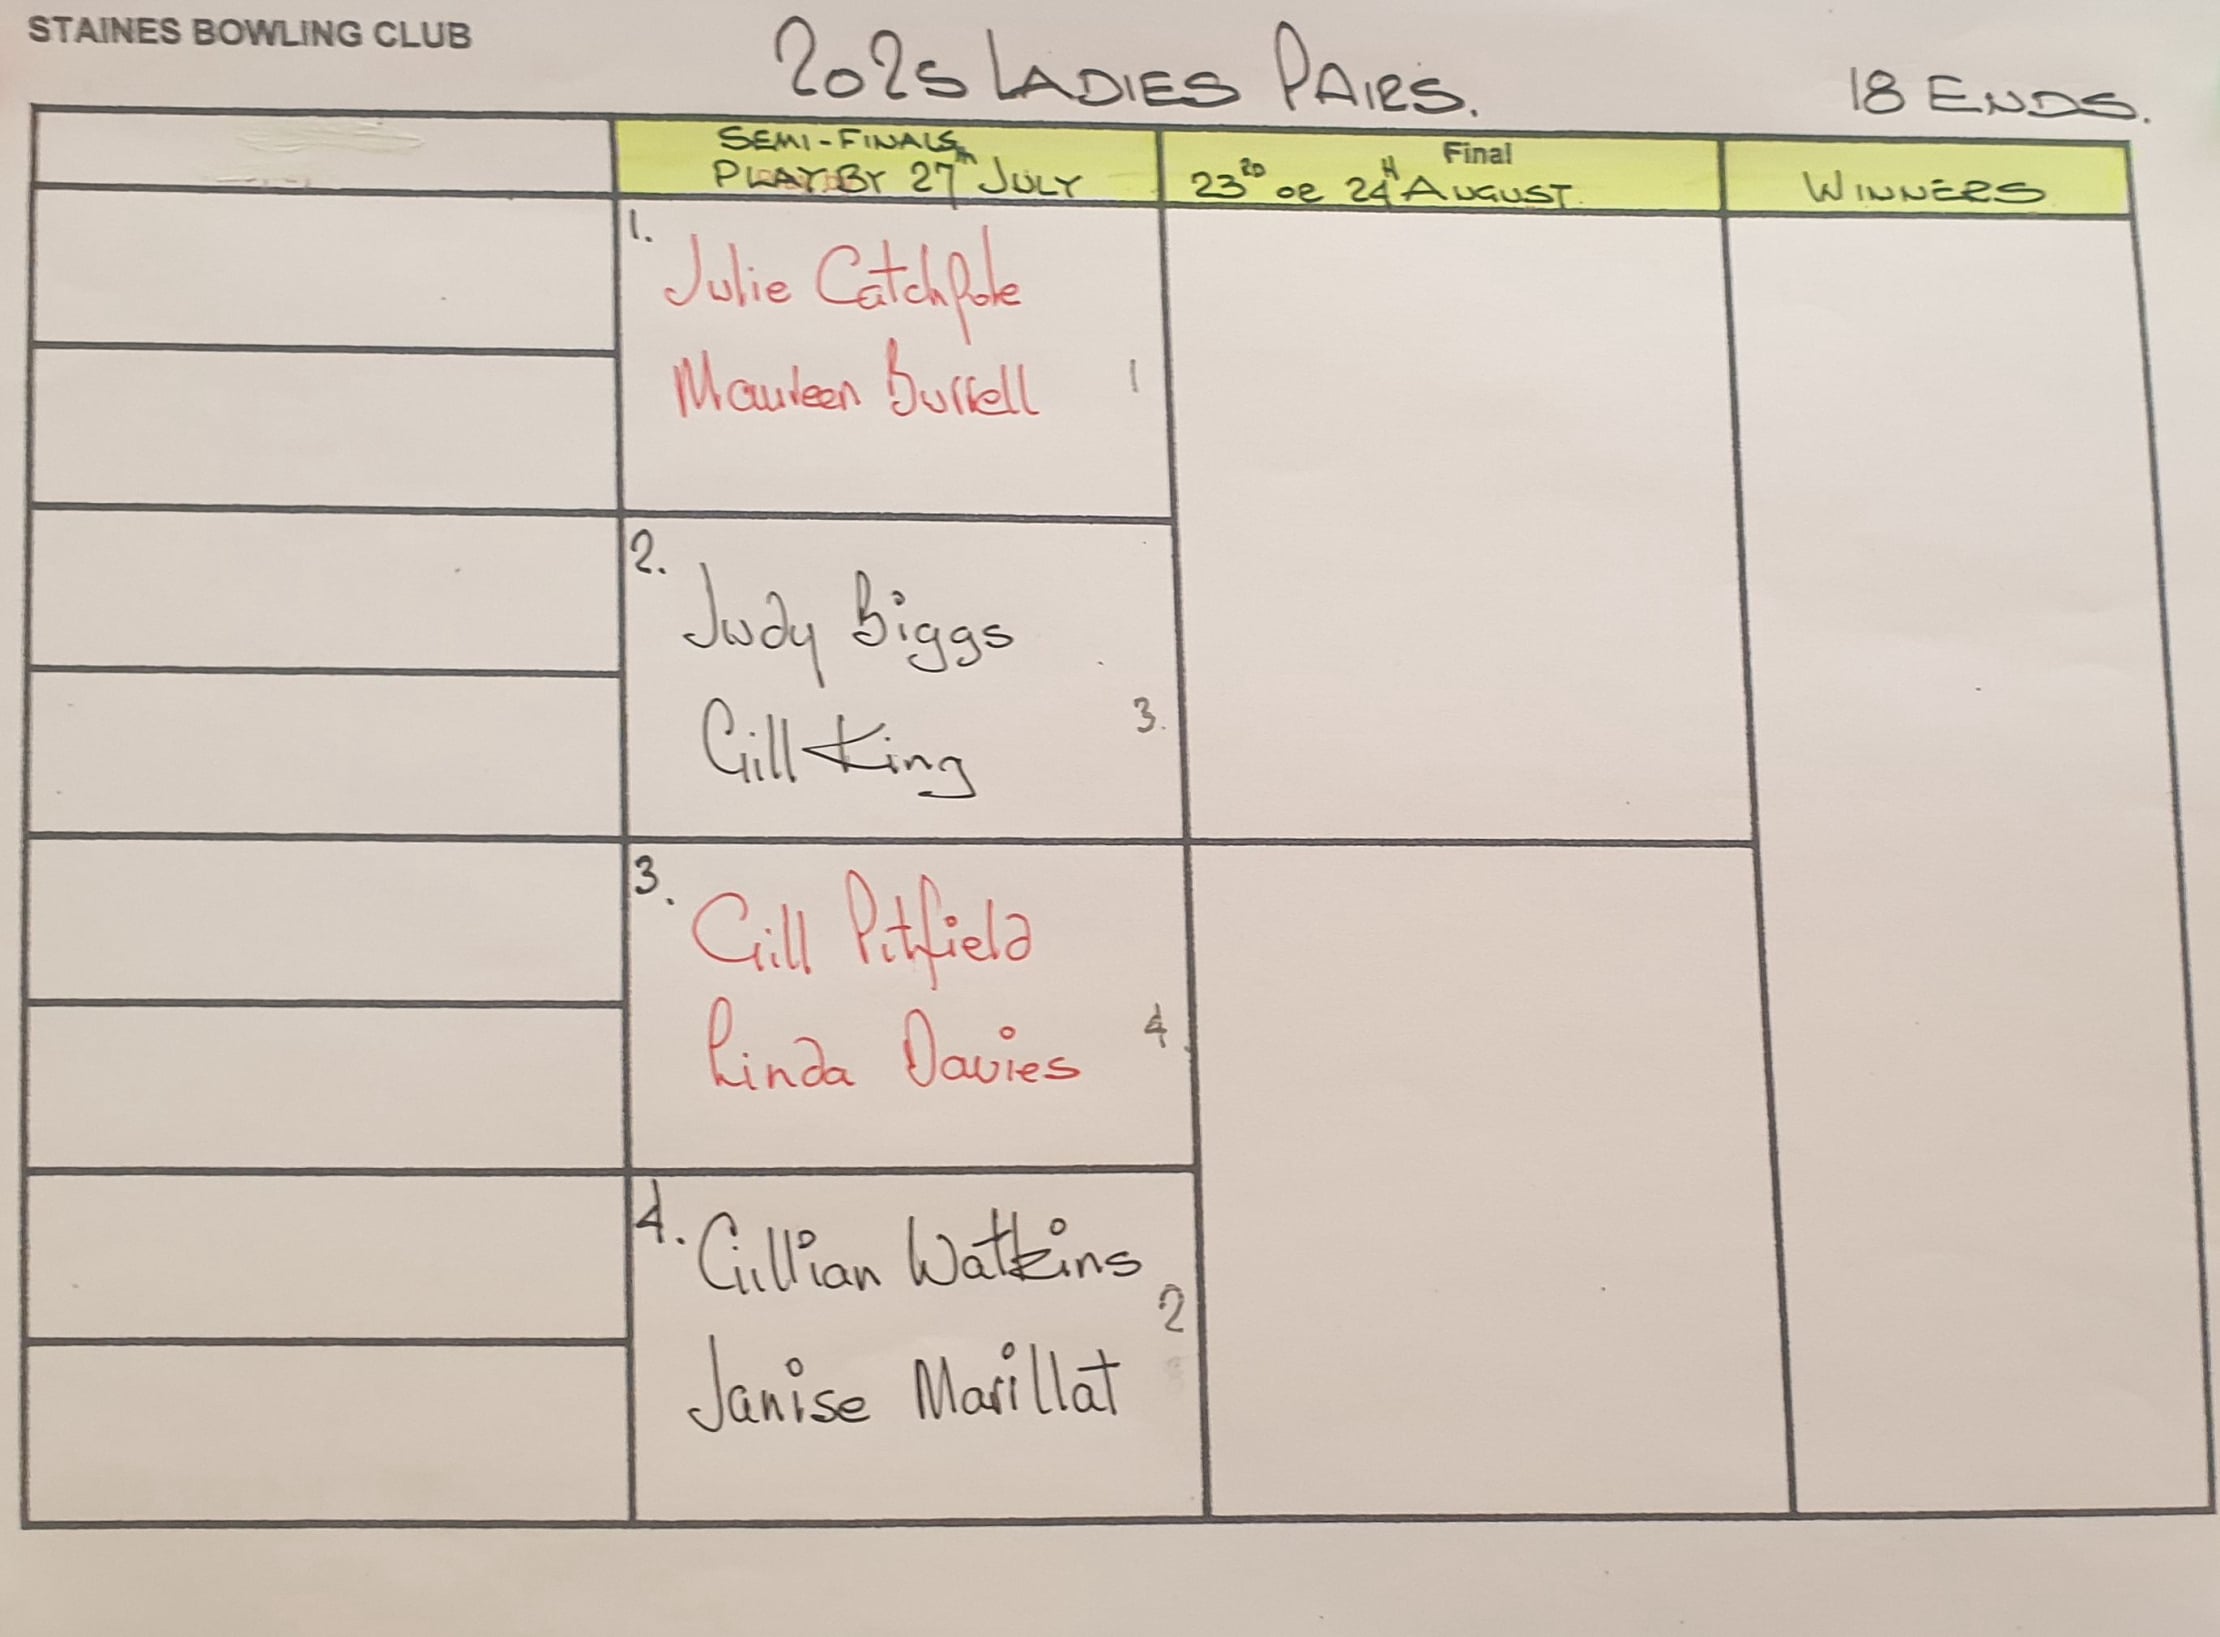 STAINES BOWLING CLUB
2025 LADIES PAIRS.
18 ENDS.
SEMI-FINALS
PLAY BY 27TH JULY
Final
23RD OR 24TH AUGUST
WINNERS
1.
Julie Catchpole
Maureen Burrell
1
2.
Judy Biggs
Gill King
3.
3.
Gill Pitfield
Linda Davies
4.
4.
Gillian Watkins
2
Janise Marillat